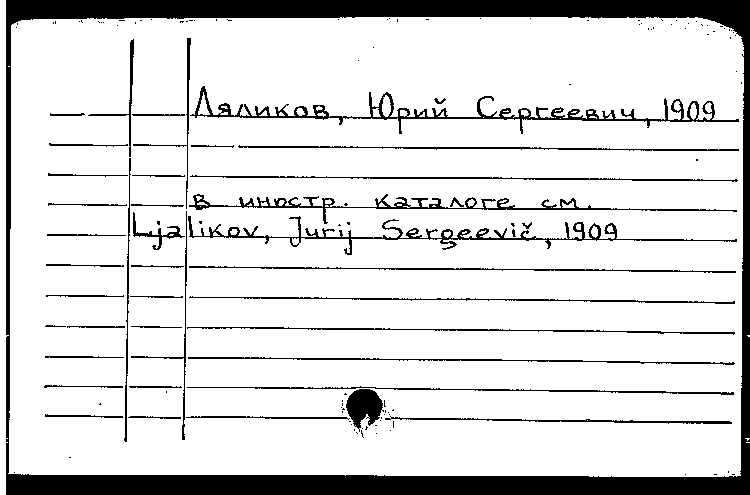 Ляликов, Юрий Сергеевич, 1909
в иностр. каталоге см.
Ljalikov, Jurij Sergeevič, 1909